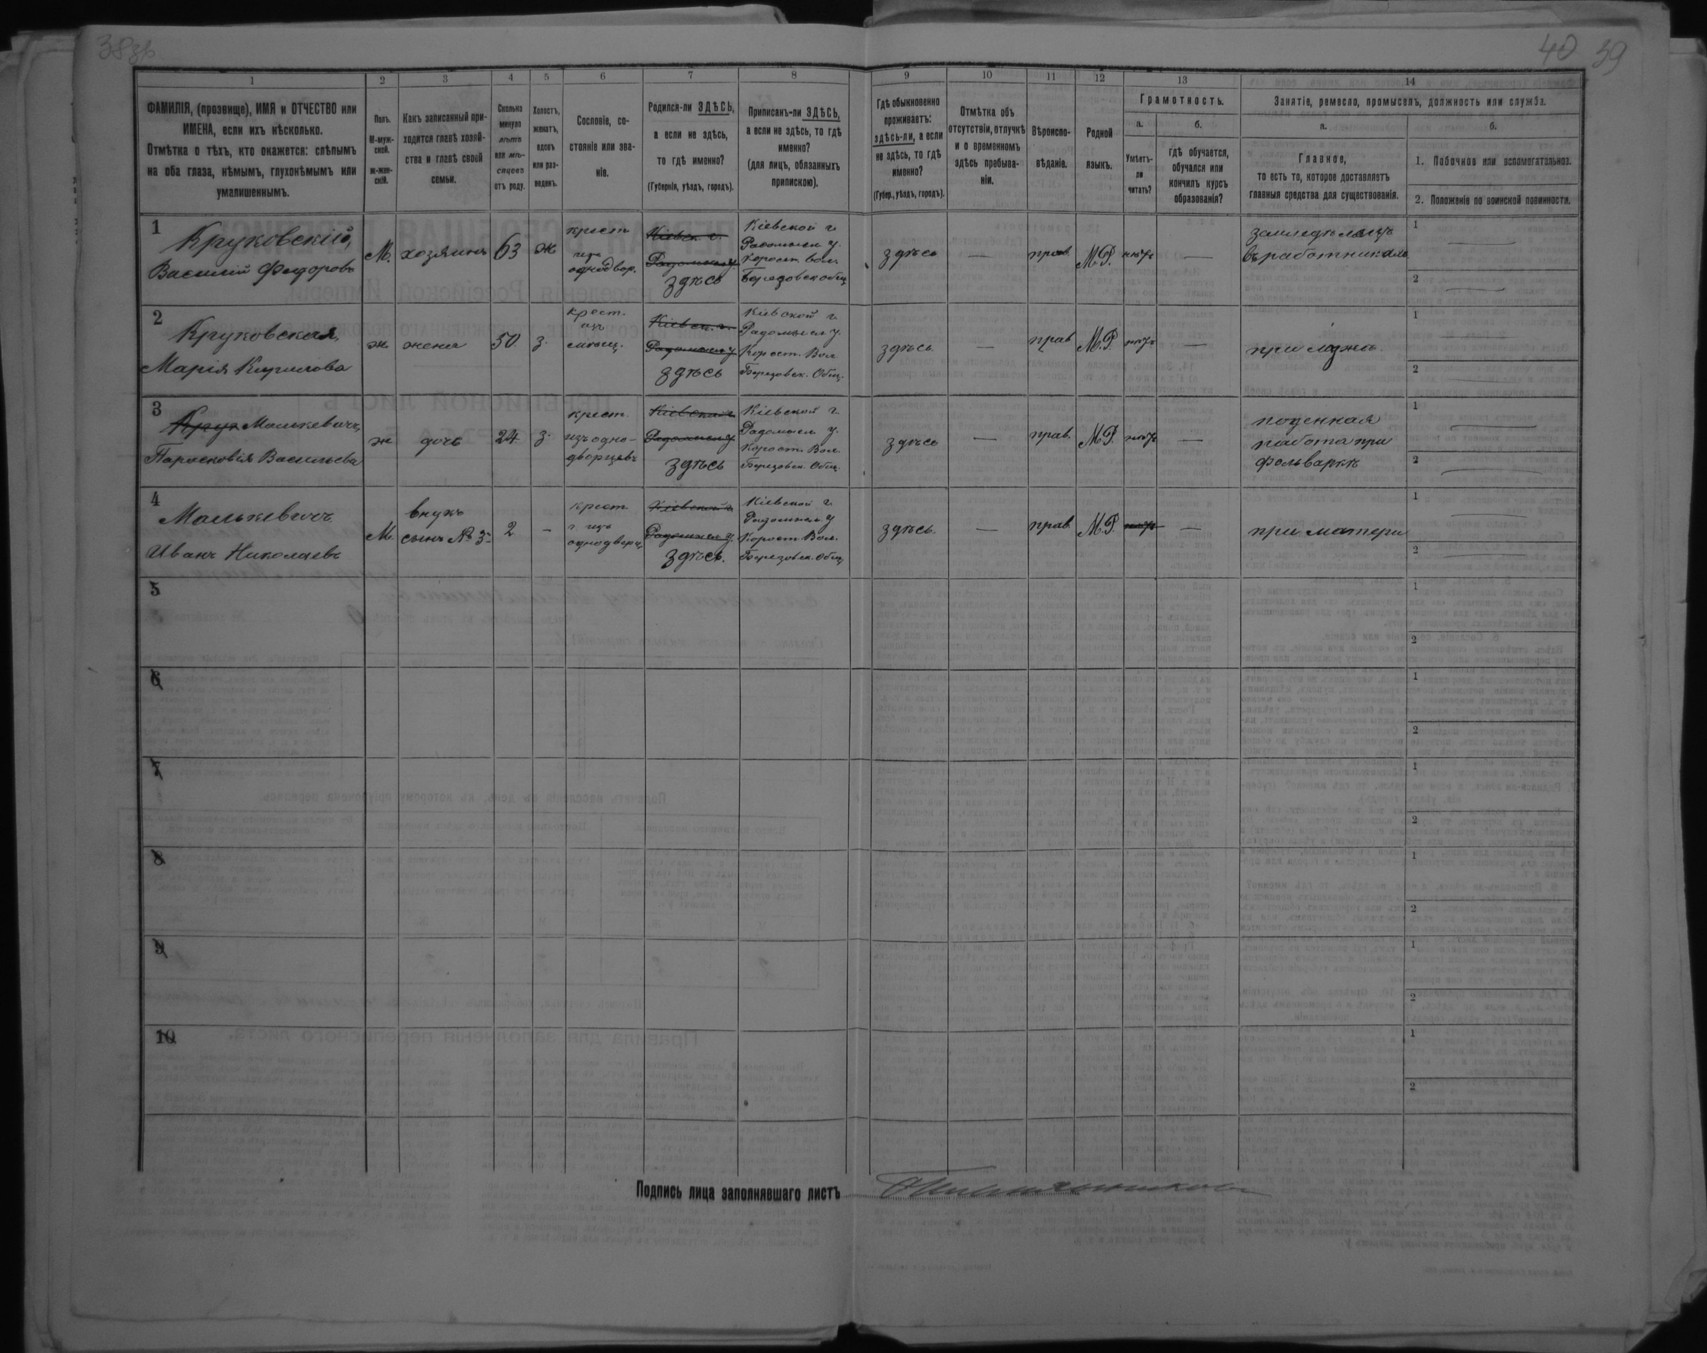 38зв
40 39
1 2 3 4 5 6 7 8 9 10 11 12 13 14
ФАМИЛІЯ, (прозвище), ИМЯ и ОТЧЕСТВО или
ИМЕНА, если ихъ нѣсколько.
Отмѣтка о тѣхъ, кто окажется: слѣпымъ
на оба глаза, нѣмымъ, глухонѣмымъ или
умалишеннымъ.
Полъ.
М-муж-
ской.
ж-жен-
скій.
Какъ записанный при-
ходится главѣ хозяй-
ства и главѣ своей
семьи.
Сколько
минуло
лѣтъ
или мѣ-
сяцевъ
отъ роду.
Холостъ,
женатъ,
вдовъ
или раз-
веденъ.
Сословіе, со-
стояніе или зва-
ніе.
Родился-ли ЗДѢСЬ,
а если не здѣсь,
то гдѣ именно?
(Губернія, уѣздъ, городъ).
Приписанъ-ли ЗДѢСЬ,
а если не здѣсь, то гдѣ
именно?
(для лицъ, обязанныхъ
припискою).
Гдѣ обыкновенно
проживаетъ:
здѣсь-ли, а если
не здѣсь, то гдѣ
именно?
(Губер., уѣздъ, городъ).
Отмѣтка объ
отсутствіи, отлучкѣ
и о временномъ
здѣсь пребыва-
ніи.
Вѣроиспо-
вѣданіе.
Родной
языкъ.
Грамотность.
а.
Умѣетъ-
ли
читать?
б.
гдѣ обучается,
обучался или
кончилъ курсъ
образованія?
Занятіе, ремесло, промыселъ, должность или служба.
а.
Главное,
то есть то, которое доставляетъ
главныя средства для существованія.
б.
1. Побочное или вспомогательное.
2. Положеніе по воинской повинности.
1
Круковскій,
Василій Федоровъ
М. хозяинъ 63 ж
крест
изъ
однодвор.
Кіевск г.
Радомысл у
здѣсь
Кіевской г.
Радомысл у.
Корост. Вол.
Березовск общ
здѣсь — прав М.Р. —
земледѣлецъ
въ работникахъ
1
2
2
Круковская,
Марія Кирилова
ж жена 50 з
крест.
изъ
Кіевск. г.
Радомысл у
здѣсь
Кіевской г.
Радомысл у.
Корост. Вол
Березовск. Общ.
здѣсь — прав М.Р —
при мужѣ
1
2
3
Крук Малькевичъ,
Парасковія Васильева
ж дочь 24 з
крест.
изъ одно-
дворцевъ
Кіевской г
Радомысл у
здѣсь
Кіевской г
Радомысл у.
Корост. Вол.
Березовск. Общ.
здѣсь — прав. М.Р. —
поденная
работа при
фольваркѣ
1
2
4
Малькевичъ
Иванъ Николаевъ
М.
внукъ
сынъ № 3 2 —
крест
г. изъ
однодворц
Кіевской г
Радомысл у.
здѣсь.
Кіевской г
Радомысл у
Корост. Вол.
Березовск. Общ.
здѣсь. — прав М.Р —
при матери
1
2
5
1
2
6
1
2
7
1
2
8
1
2
9
1
2
10
1
2
Подпись лица заполнявшаго листъ